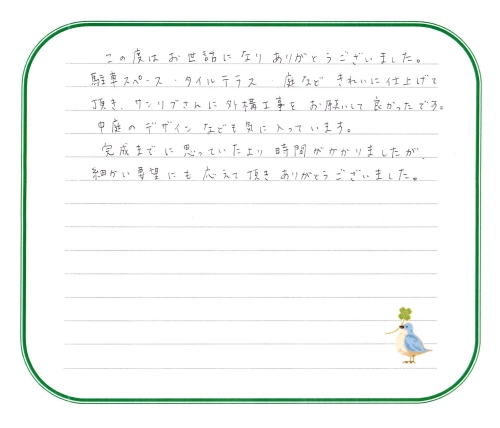 この度はお世話になりありがとうございました。
駐車スペース・タイルテラス・庭など きれいに仕上げて
頂き、サンリブさんに外構工事を お願いして良かったです。
中庭のデザインなども気に入っています。
完成までに思っていたより時間がかかりましたが、
細かい要望にも応えて頂きありがとうございました。